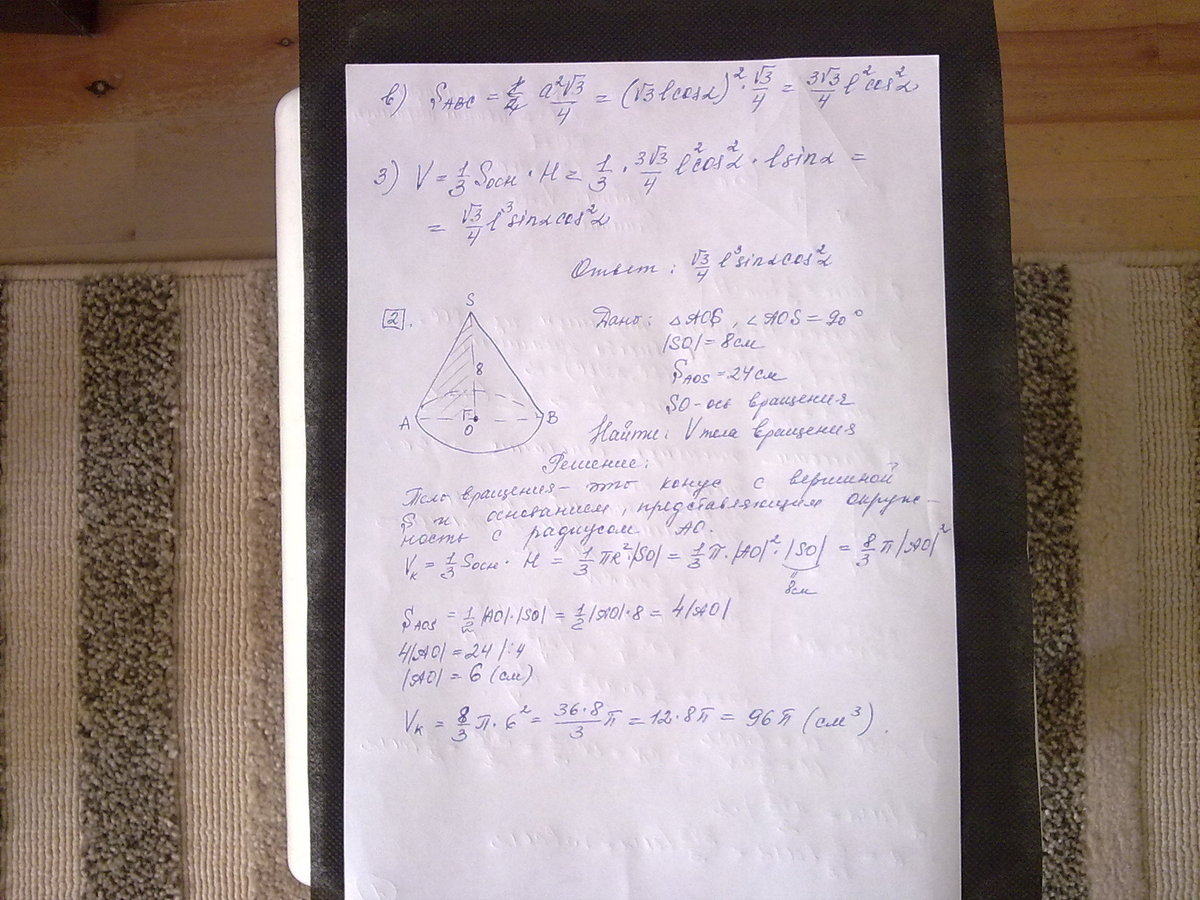 в) S_ABC = a²√3/4 = (√3 l cos α)² · √3/4 = 3√3/4 l² cos² α
3) V = 1/3 Sосн · H = 1/3 · 3√3/4 l² cos² α · l sin α =
= √3/4 l³ sin α cos² α
Ответ: √3/4 l³ sin α cos² α
2.
S
8
A
O
B
Дано: △AOS, ∠AOS = 90°
|SO| = 8 см
S_AOS = 24 см
SO - ось вращения
Найти: V тела вращения
Решение:
Тело вращения - это конус с вершиной
S и основанием, представляющим окруж-
ность с радиусом AO.
Vк = 1/3 Sосн · H = 1/3 πR² · |SO| = 1/3 π · |AO|² · |SO| = 8/3 π |AO|²
8см
S_AOS = 1/2 |AO| · |SO| = 1/2 |AO| · 8 = 4|AO|
4|AO| = 24 |:4
|AO| = 6 (см)
Vк = 8/3 π · 6² = 36·8/3 π = 12 · 8π = 96π (см³).